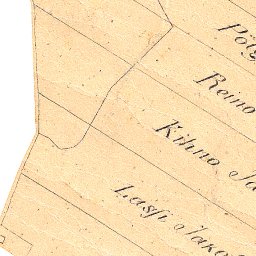 Pöly
Reino
Kihno Ja
Lassi Jako